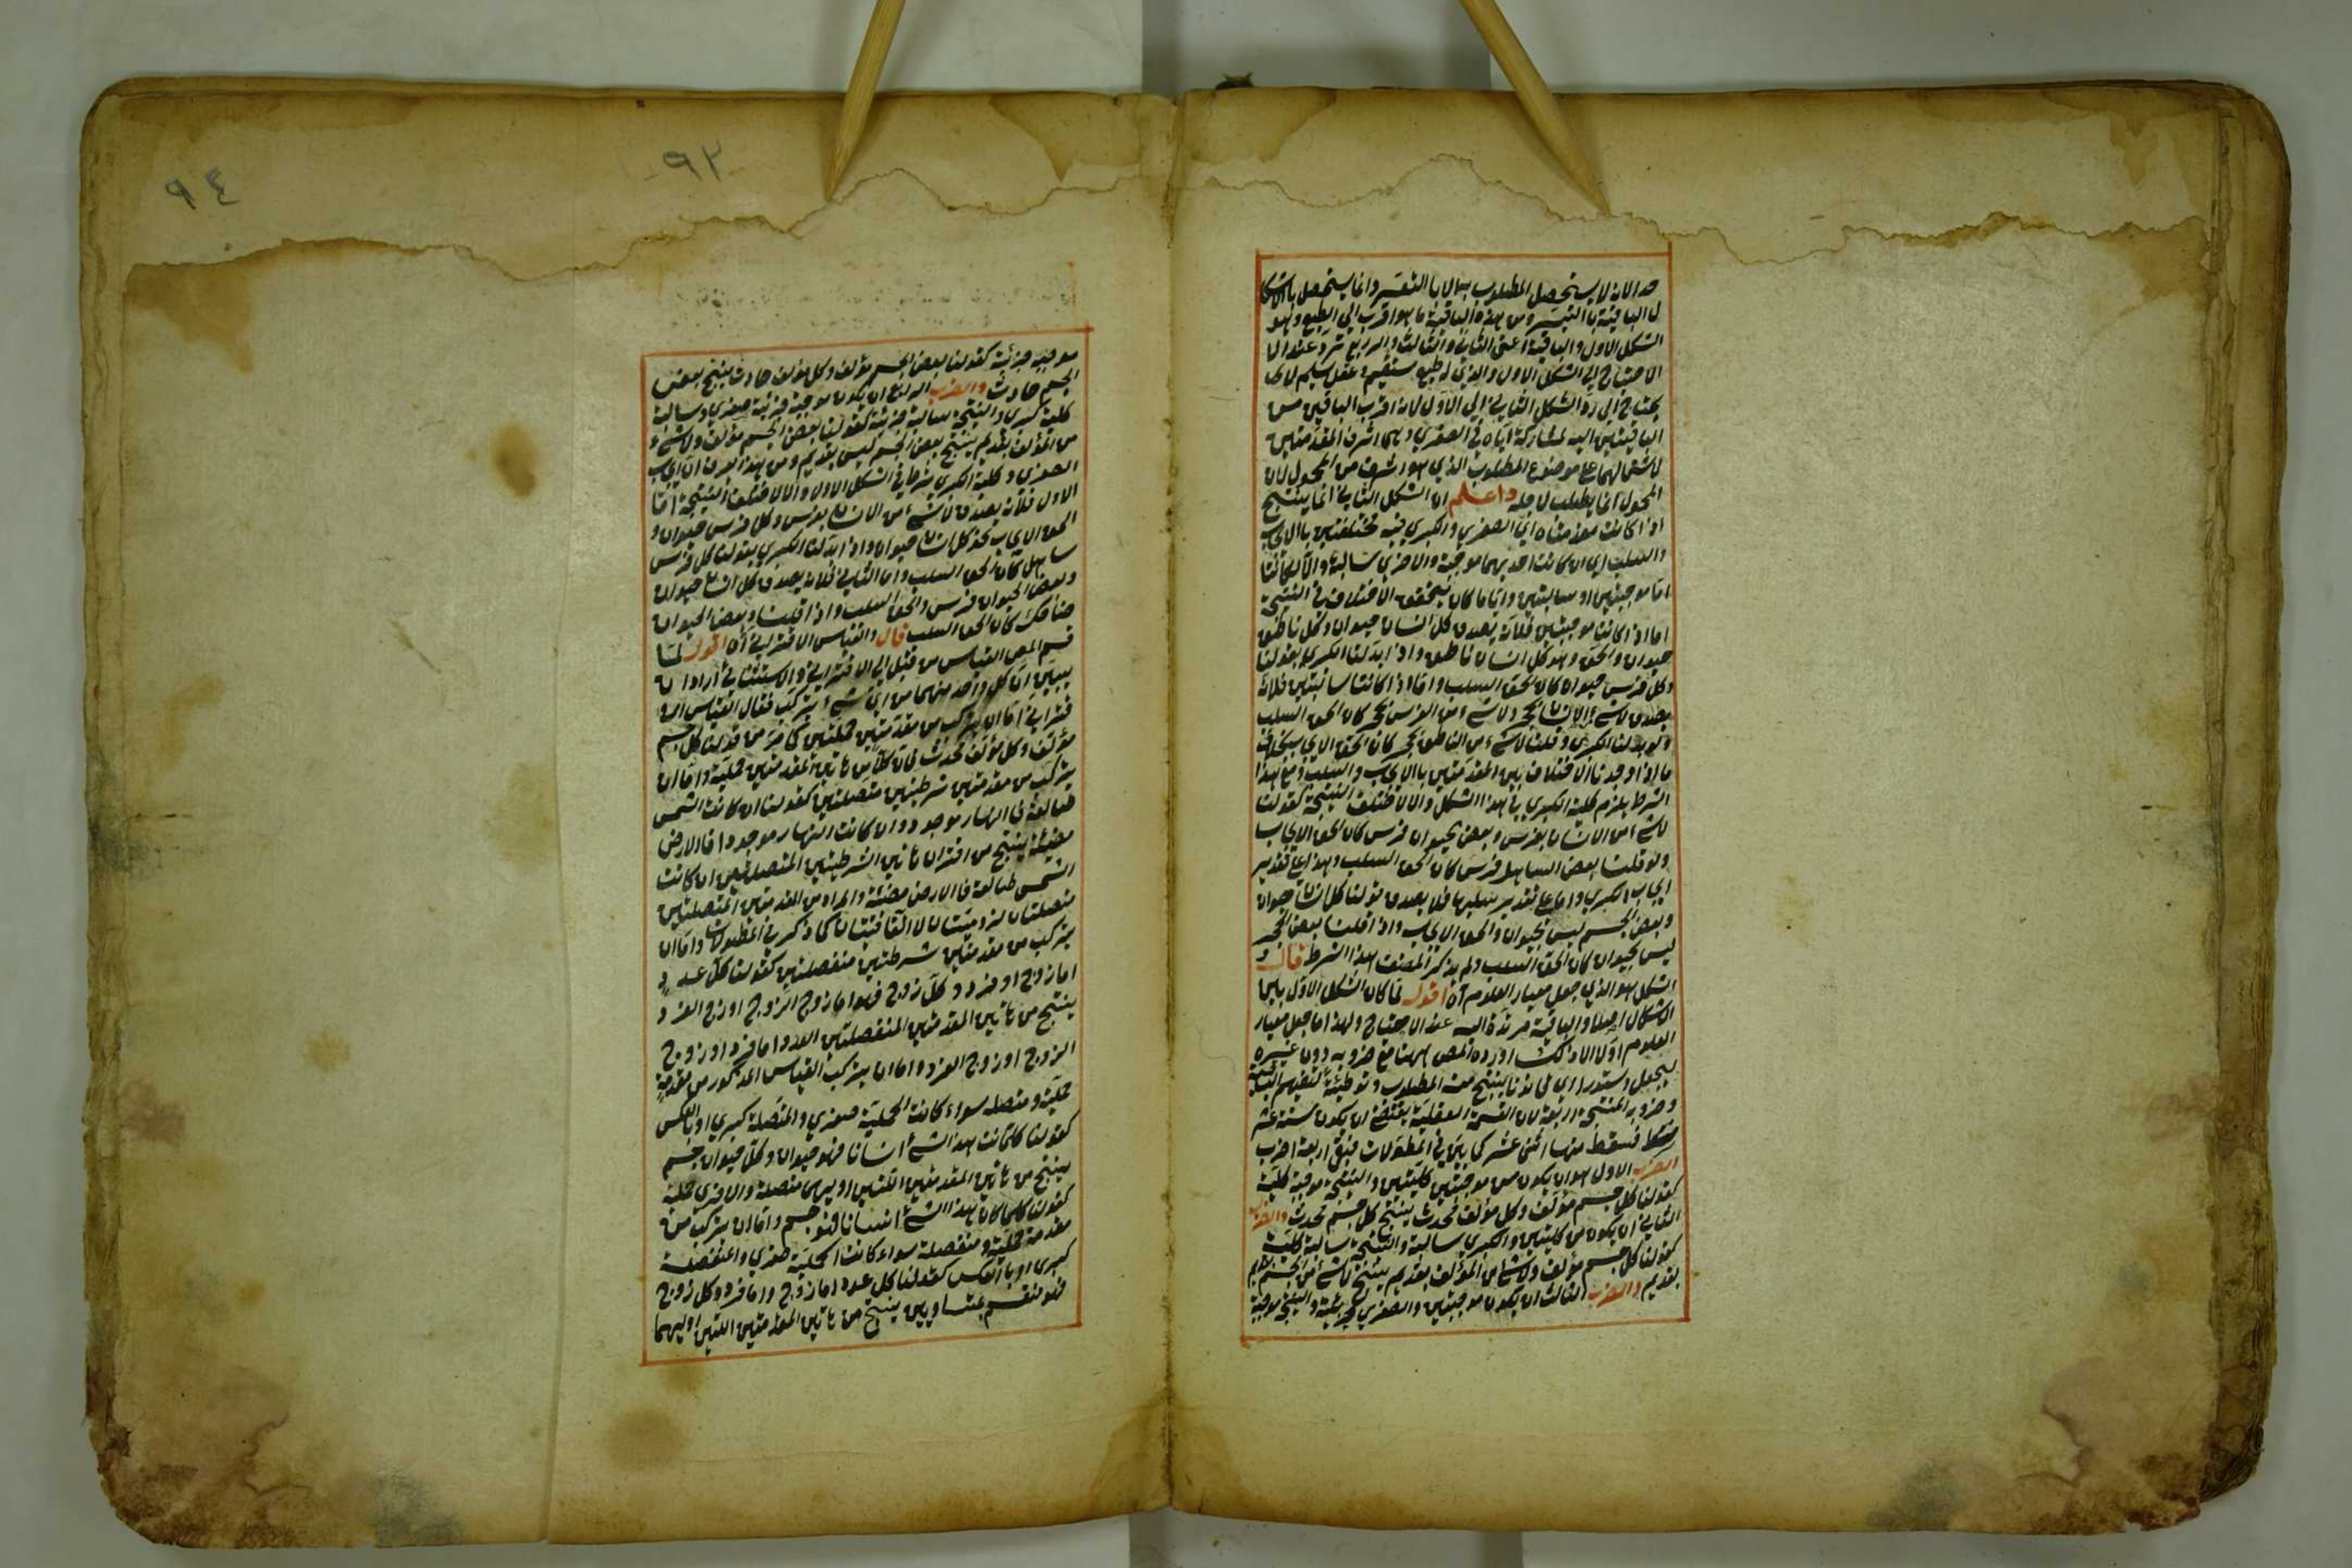 حد الا انه لا يستحصل المطلوب بها الا بالتعسر وانما يستحصل بالاشكا
ل الباقية بالتيسر ومن هذه الباقية ما هو اقرب الى الطبع وهو
الشكل الاول والباقية اعنى الثاني والثالث والرابع ترد عند الا
الاحتياج الى الشكل الاول والذي له طبع مستقيم وعقل سليم لا
يحتاج الى رد الشكل الثاني الى الاول لانه اقرب الباقين من
الباقيتين اليه لمشاركته اياه في الصغرى وهى اشرف المقدمتين
لاشتمالهما على موضوع المطلوب الذي هو اشرف من المحمول لان
المحمول انما يطلب لاجله واعلم ان الشكل الثاني انما ينتج
اذا كانت مقدمتاه اي الصغرى والكبرى فيه مختلفتين بالايجاب
والسلب اي ان كانت احديهما موجبة والاخرى سالبة والا لكانتا
اما موجبتين او سالبتين وايا ما كان يتحقق الاختلاف في النتيجة
اما اذا كانتا موجبتين فلانه يصدق كل انسان حيوان وكل ناطق
حيوان والحق وهو كل انسان ناطق واذا ابدلنا الكبرى بقولنا
وكل فرس حيوان كان الحق السلب واما اذا كانتا سالبتين فلانه
يصدق لا شئ من الانسان بحجر ولا شئ من الفرس بحجر كان الحق السلب
ولو بدلنا الكبرى وقلنا لا شئ من الناطق بحجر كان الحق الايجاب بخلاف
ما اذا وجدنا الاختلاف بين المقدمتين بالايجاب والسلب ومع هذا
الشرط يلزم كلية الكبرى في هذا الشكل والا لاختلف النتيجة كقولنا
لا شئ من الانسان بفرس وبعض الحيوان فرس كان الحق الايجاب
ولو قلنا بعض الساهل فرس كان الحق السلب وهذا على تقدير
ايجاب الكبرى واما على تقدير سلبها فلا يصدق قولنا كل انسان حيوان
وبعض الجسم ليس بحيوان والحق الايجاب واذا قلنا بعض الحجر
ليس بحيوان كان الحق السلب ولم يذكر المصنف هذا الشرط قال و
الشكل هو الذي جعل معيار العلوم آه اقول لما كان الشكل الاول باليها
الاشكال اصلا والباقية مرتدة اليه عند الاحتياج ولهذا ما جعل معيار
العلوم اولا الا ذلك اورده المص ههنا مع ضروبه دون غيره
ليجعل دستورا اي قانونا ينتج منه المطلوب وتوطئة لتفهيم
وضروبه المنتجة اربعة لان القسمة العقلية يقتضى ان يكون ستة عشر
فسقط منها اثنى عشر كما بين في المطولات فبقى اربعة اضرب
الضرب الاول هو ان يكون من موجبتين كليتين والنتيجة موجبة كلية
كقولنا كل جسم مؤلف وكل مؤلف محدث ينتج كل جسم محدث والضرب
الثاني ان يكون من كليتين والكبرى سالبة والنتيجة سالبة كلية
كقولنا كل جسم مؤلف ولا شئ من المؤلف بقديم ينتج لا شئ من الجسم
بقديم والضرب الثالث ان يكون موجبتين والصغرى جزئية والنتيجة موجبة
٩٤
٩٢
موجبة جزئية كقولنا بعض الجسم مؤلف وكل مؤلف حادث ينتج بعض
الجسم حادث والضرب الرابع ان يكون موجبة جزئية صغرى وسالبة
كلية كبرى والنتيجة سالبة جزئية كقولنا بعض الجسم مؤلف ولا شئ
من المؤلف بقديم ينتج بعض الجسم ليس بقديم ومن هذا عرف ان ايجاب
الصغرى وكلية الكبرى شرط في الشكل الاول والا لاختلف النتيجة اما
الاول فلانه يصدق لا شئ من الانسان بفرس وكل فرس حيوان و
الحق الايجاب نحو كل انسان حيوان واذا ابدلنا الكبرى بقولنا كل فرس
ساهل كان الحق السلب واما الثاني فلانه يصدق كل انسان حيوان
وبعض الحيوان فرس والحق السلب واذا قلنا وبعض الحيوان
ضاحك كان الحق السلب قال والقياس الاقتراني آه اقول لما
قسم المص القياس من قبل الى الاقتراني والاستثنائي اراد ان
يبين ان كل واحد منهما من اي شئ يتركب فقال القياس الا
قتراني اما ان يتركب من مقدمتين حمليتين كما مر من قولنا كل جسم
مؤلف وكل مؤلف محدث فان كلا من هاتين المقدمتين حملية واما ان
يتركب من مقدمتين شرطيتين متصلتين كقولنا ان كانت الشمس
طالعة فالنهار موجود وان كانت النهار موجودا فالارض
مضيئة ينتج من اقتران هاتين الشرطيتين المتصلتين ان كانت
الشمس طالعة فالارض مضيئة والمراد من المقدمتين المتصلتين
متصلتان لزوميتان لا اتفاقيتان كما ذكر في المطولات واما ان
يتركب من مقدمتين شرطيتين منفصلتين كقولنا كل عدد
اما زوج او فرد وكل زوج فهو اما زوج الزوج او زوج الفرد
ينتج من هاتين المقدمتين المنفصلتين العدد اما فرد او زوج
الزوج او زوج الفرد واما ان يتركب القياس المذكور من مقدمة
حملية ومتصلة سواء كانت الحملية صغرى والمتصلة كبرى او بالعكس
كقولنا كلما كانت هذا الشئ انسانا فهو حيوان وكل حيوان جسم
ينتج من هاتين المقدمتين اللتين اوليهما متصلة والاخرى حملية
كقولنا كلما كان هذا الشئ انسانا فهو جسم واما ان يتركب من
مقدمة حملية ومنفصلة سواء كانت الحملية صغرى والمنفصلة
كبرى او بالعكس كقولنا كل عدد اما زوج واما فرد وكل زوج
فهو منقسم بمتساويين ينتج من هاتين المقدمتين اللتين اوليهما